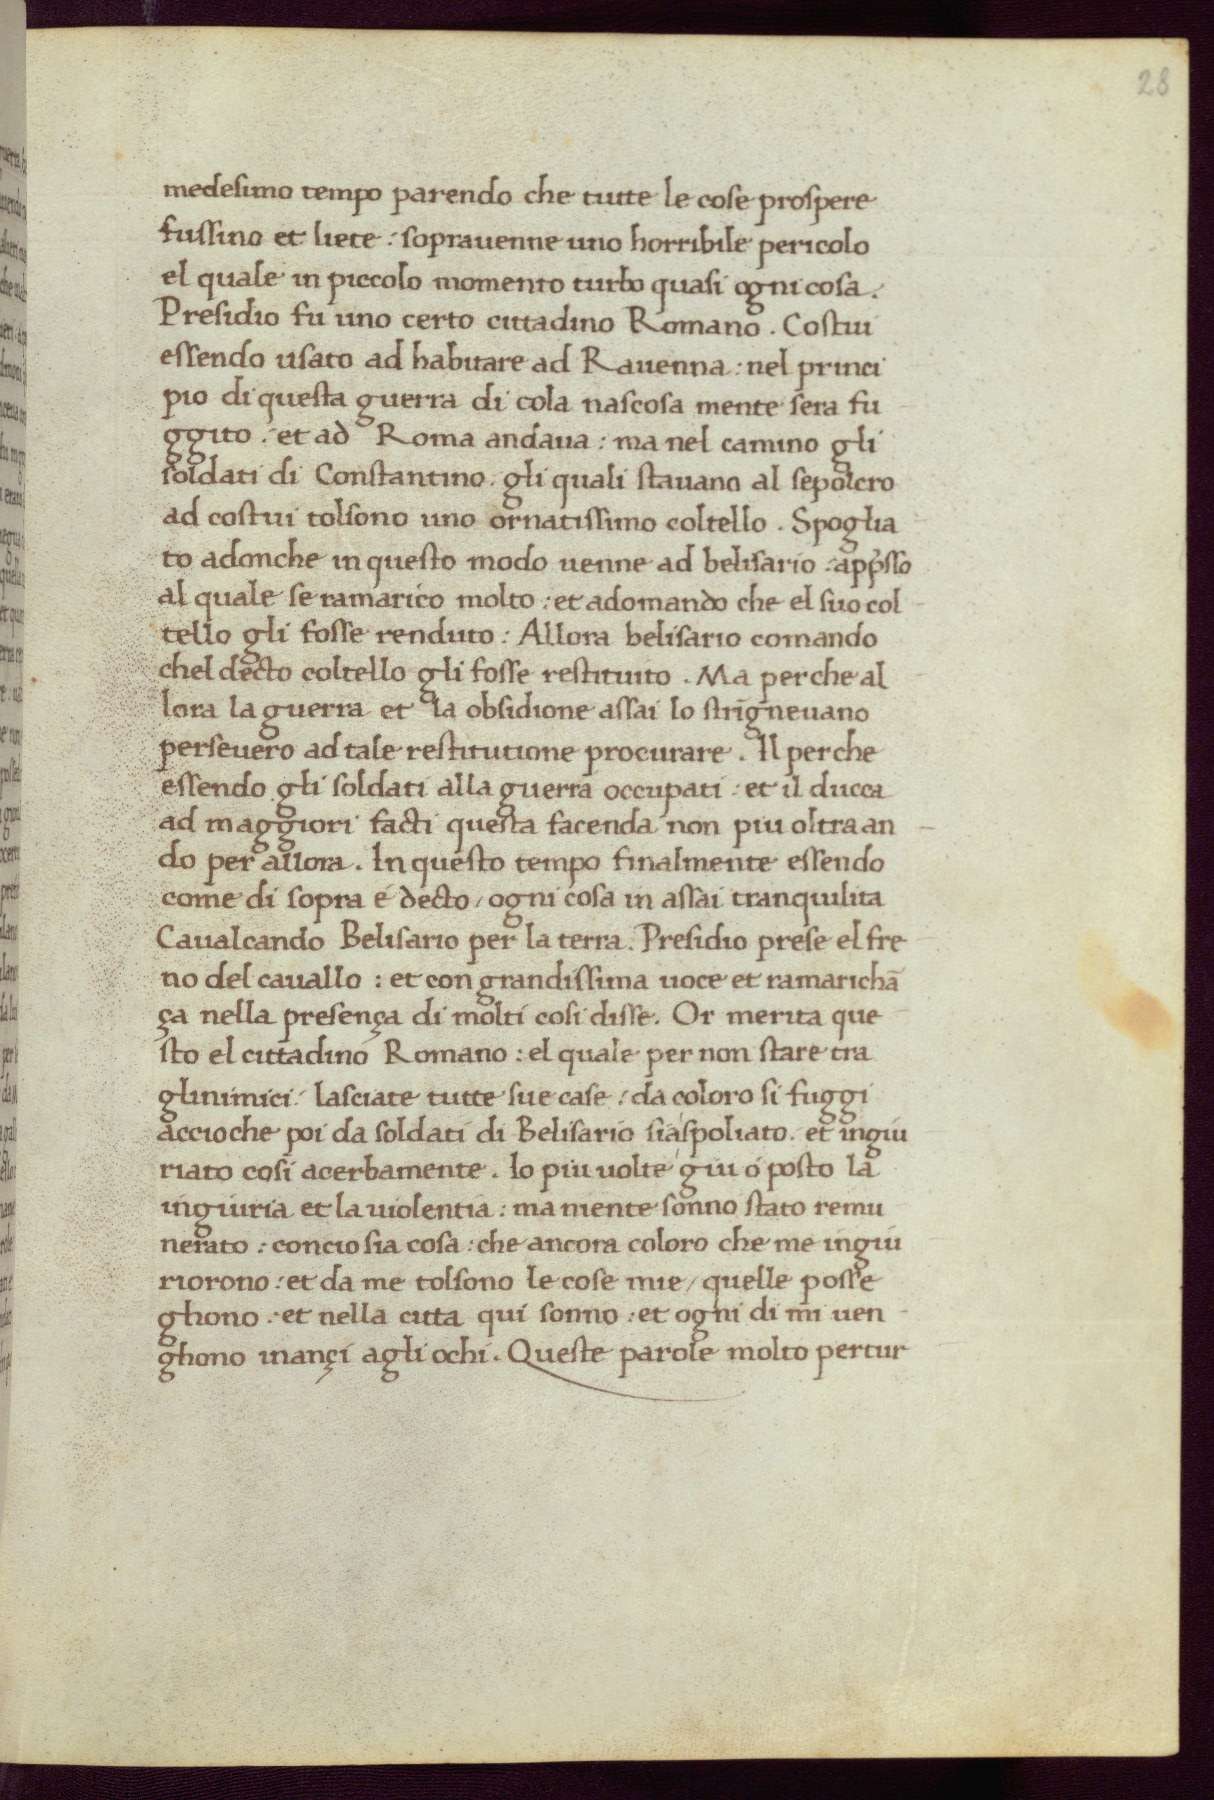 28
medesimo tempo parendo che tutte le cose prospere
fussino et liete : sopravenne uno horribile pericolo
el quale in piccolo momento turbo quasi ogni cosa .
Presidio fu uno certo cittadino Romano . Costui
essendo usato ad habitare ad Rauenna : nel princi
pio di questa guerra di cola nascosa mente sera fu
ggito : et ad Roma andaua : ma nel camino gli
soldati di Constantino . gli quali stauano al sepolcro
ad costui tolsono uno ornatissimo coltello . Spoglia
to adonche in questo modo uenne ad belisario : app̄sso
al quale se ramarico molto : et adomando che el suo col
tello gli fosse renduto : Allora belisario comando
chel decto coltello gli fosse restituito . Ma perche al
lora la guerra et la obsidione assai lo strigneuano
perseuero ad tale restitutione procurare . Il perche
essendo gli soldati alla guerra occupati : et il ducca
ad maggiori facti questa facenda non piu oltra an
do per allora . In questo tempo finalmente essendo
come di sopra é decto / ogni cosa in assai tranquilita
Caualcando Belisario per la terra . Presidio prese el fre
no del cauallo : et con grandissima uoce et ramarichā
ça nella presença di molti cosi disse . Or merita que
sto el cittadino Romano : el quale per non stare tra
glinimici : lasciate tutte sue case : da coloro si fuggi
accioche poi da soldati di Belisario sia spoliato . et ingiu
riato cosi acerbamente . Io piu uolte giu ó posto la
ingiuria et la uiolentia : ma niente sonno stato remu
nerato : concio sia cosa : che ancora coloro che me ingiu
riorono : et da me tolsono le cose mie / quelle posse
ghono : et nella citta qui sonno : et ogni di mi uen
ghono inançi agli ochi . Queste parole molto pertur